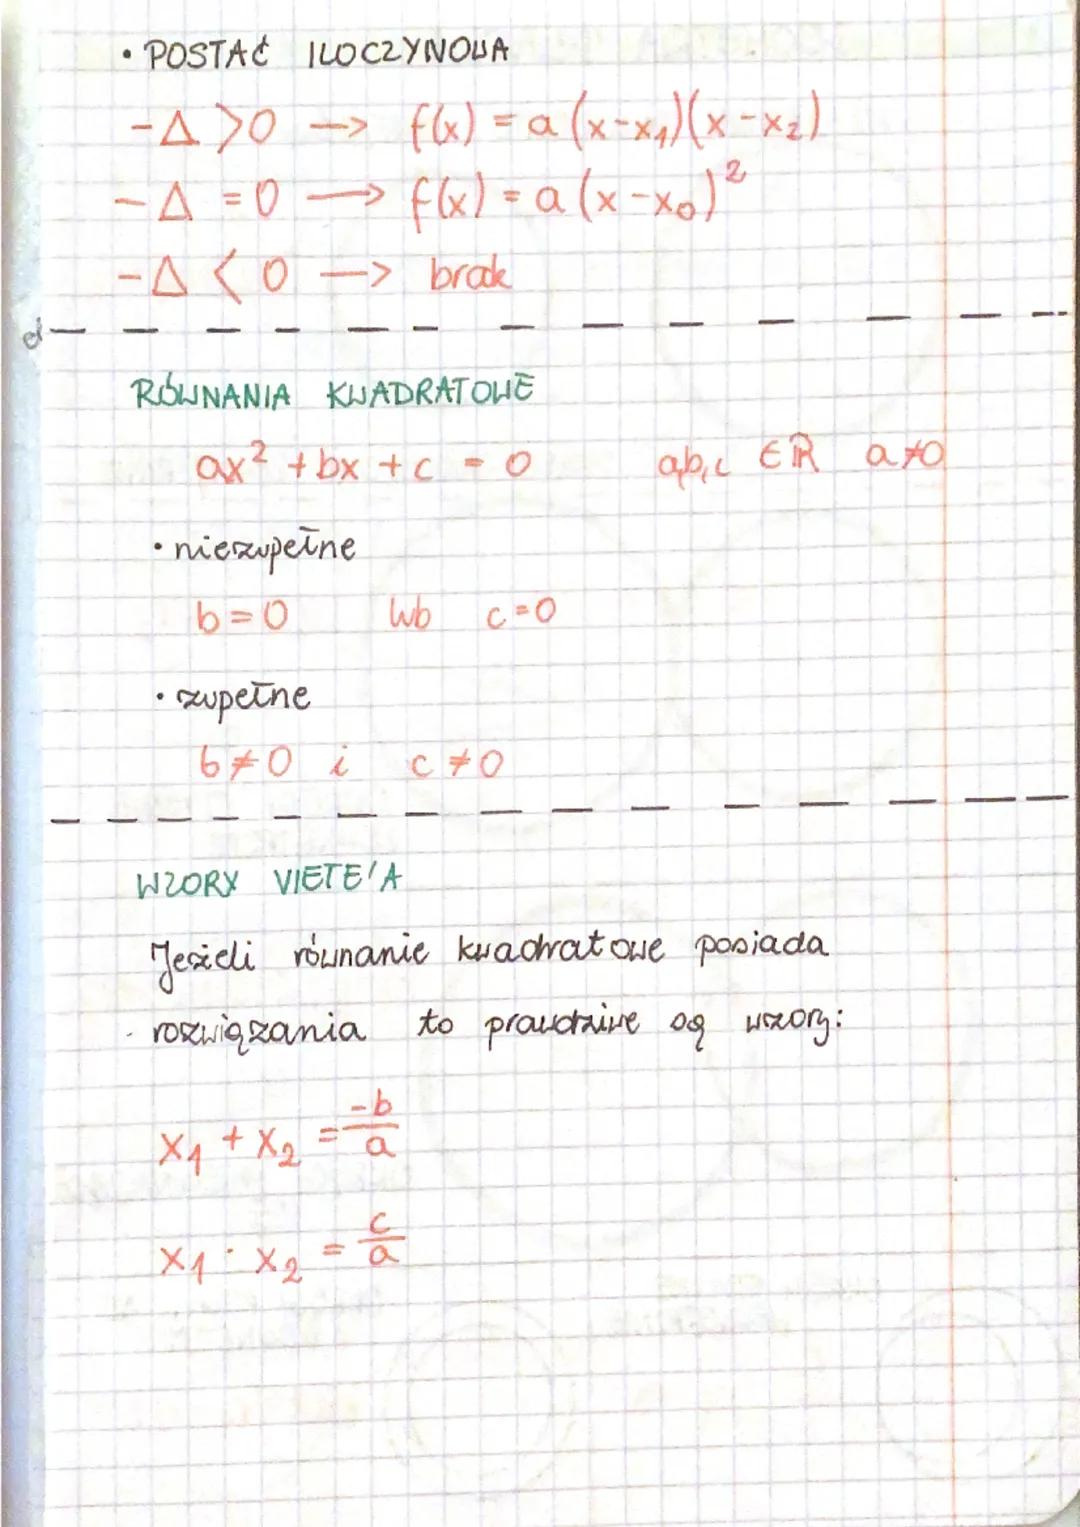 • POSTAĆ ILOCZYNOWA
- Δ > 0 → f(x) = a (x-x₁)(x-x₂)
- Δ = 0 → f(x) = a (x-x₀)²
- Δ < 0 → brak
RÓWNANIA KWADRATOWE
ax² + bx + c = 0 a,b,c ∈ ℝ a≠0
• niezupełne
b = 0 lub c = 0
• zupełne
b ≠ 0 i c ≠ 0
WZORY VIETE'A
Jeżeli równanie kwadratowe posiada
rozwiązania to prawdziwe są wzory:
x₁ + x₂ = -b/a
x₁ · x₂ = c/a